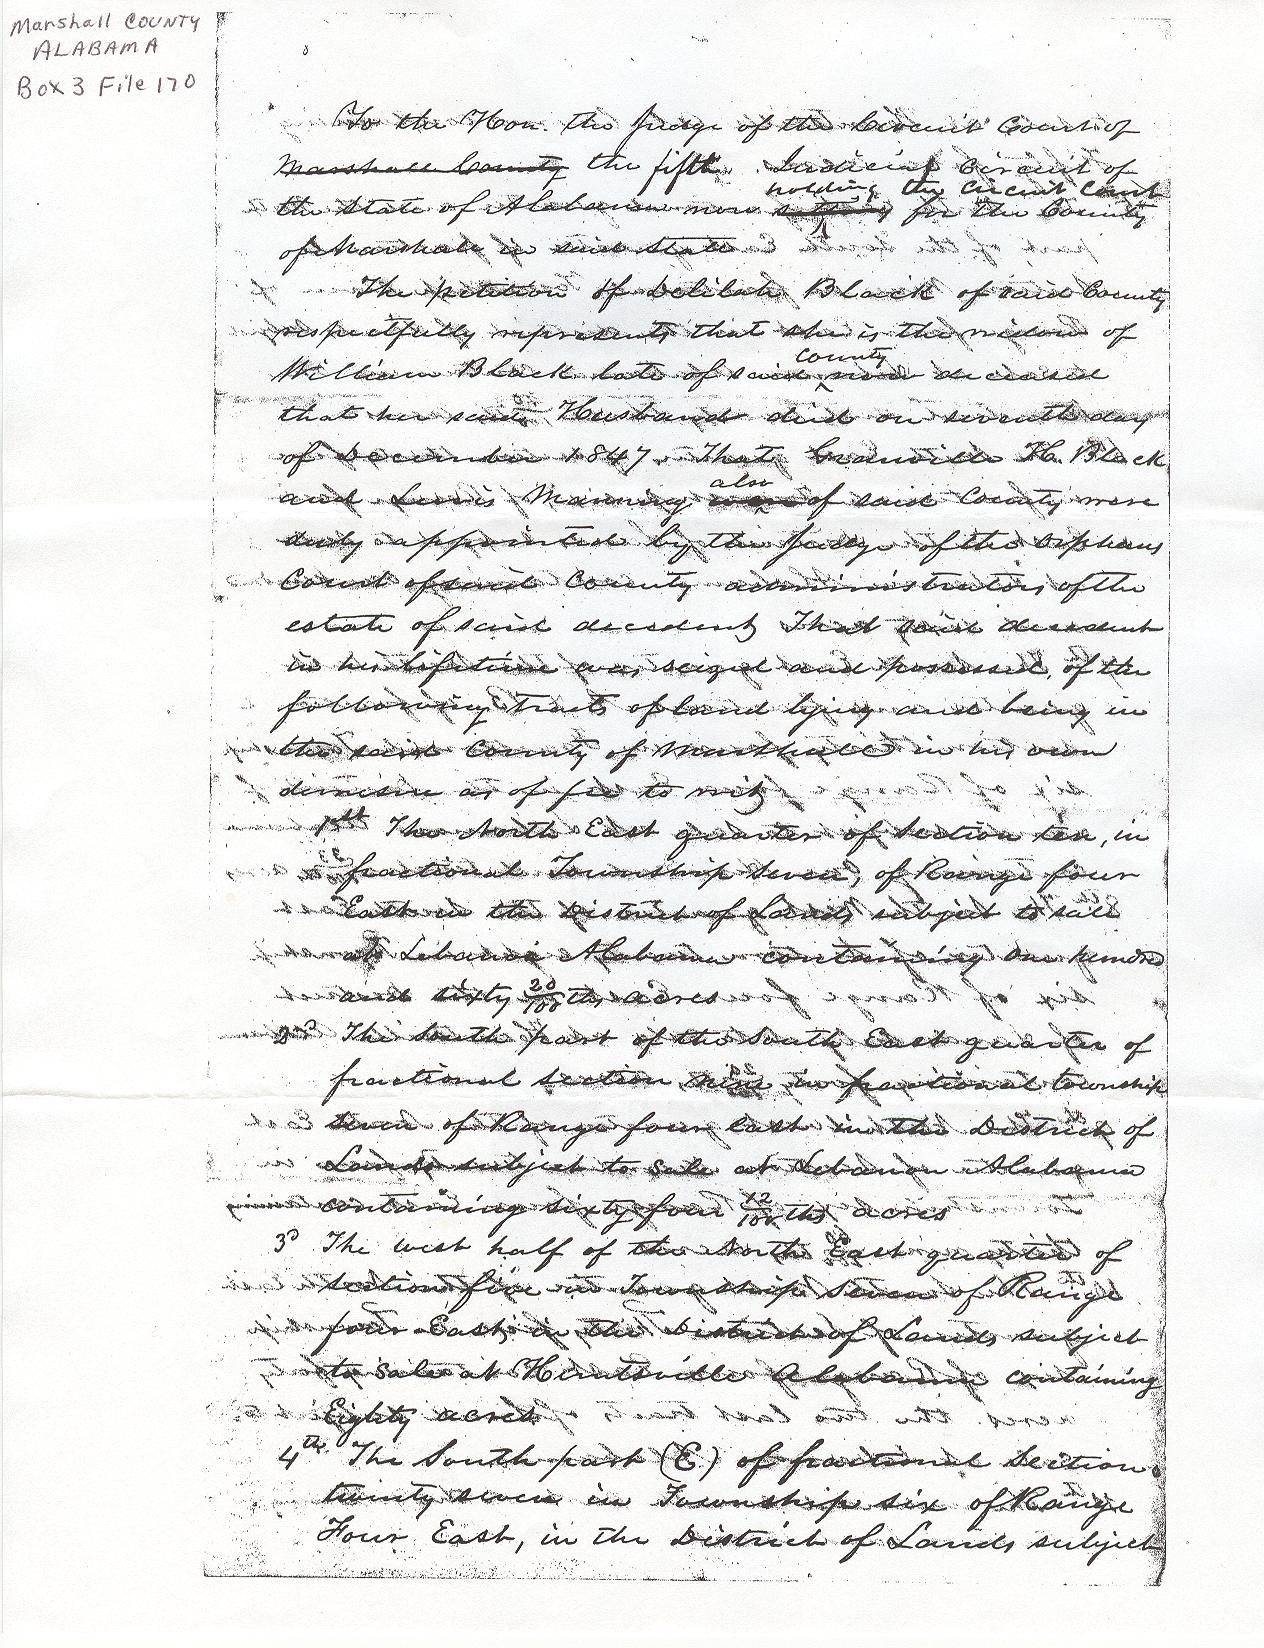 Marshall COUNTY
ALABAMA
Box 3 File 170
To the Hon. the Judge of the Circuit Court of
Marshall County the fifth Judicial Circuit of
holding the Circuit Court
the State of Alabama now sitting for the County
of Marshall in said State
The petition of Delilah Black of said County
respectfully represents that she is the widow of
county
William Black late of said now deceased
that her said Husband died on seventh day
of December 1847. That Granville H. Black
also
and Lewis Manning of said County were
duly appointed by the Judge of the Orphans
Court of said County administrators of the
estate of said decedent, That said decedent
in his lifetime was seized and possessed, of the
following tracts of land lying and being in
the said County of Marshall in his own
demisne as of fee to wit,
1st The North East quarter of Section ten, in
fractional Township Seven, of Range four
East in the District of Lands subject to sale
at Lebanon Alabama containing One hundred
and sixty 20/100ths acres
2nd The South part of the South East quarter of
fractional section nine in fractional township
seven of Range four east in the District of
Lands subject to sale at Lebanon Alabama
containing sixty four 12/100ths acres
3d The west half of the North East quarter of
section five in Township Seven of Range
four East, in the District of Lands subject
to sale at Huntsville Alabama containing
Eighty acres
4th The South part (E) of fractional Section
twenty seven in Township six of Range
Four East, in the District of Lands subject